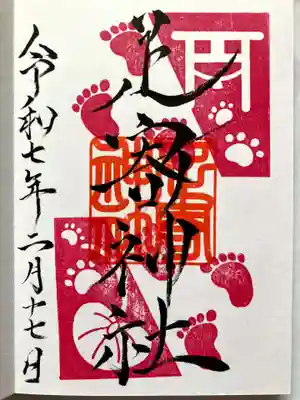 足寄神社
令和七年二月十七日